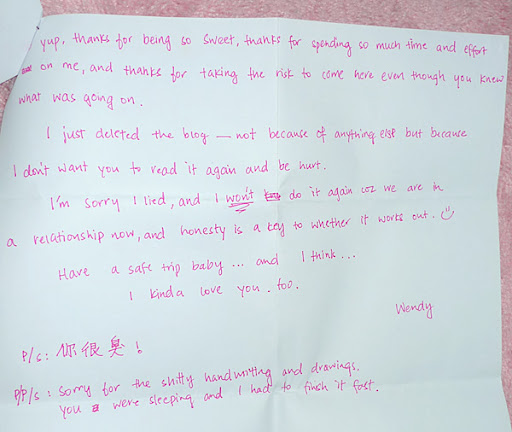 yup, thanks for being so sweet, thanks for spending so much time and effort
on me, and thanks for taking the risk to come here even though you knew
what was going on.
I just deleted the blog — not because of anything else but because
I don't want you to read it again and be hurt.
I'm sorry I lied, and I won't do it again coz we are in
a relationship now, and honesty is a key to whether it works out.
Have a safe trip baby... and I think...
I kinda love you. too.
Wendy
P/s: 你很臭!
P/P/s: Sorry for the shitty handwriting and drawings.
You were sleeping and I had to finish it fast.